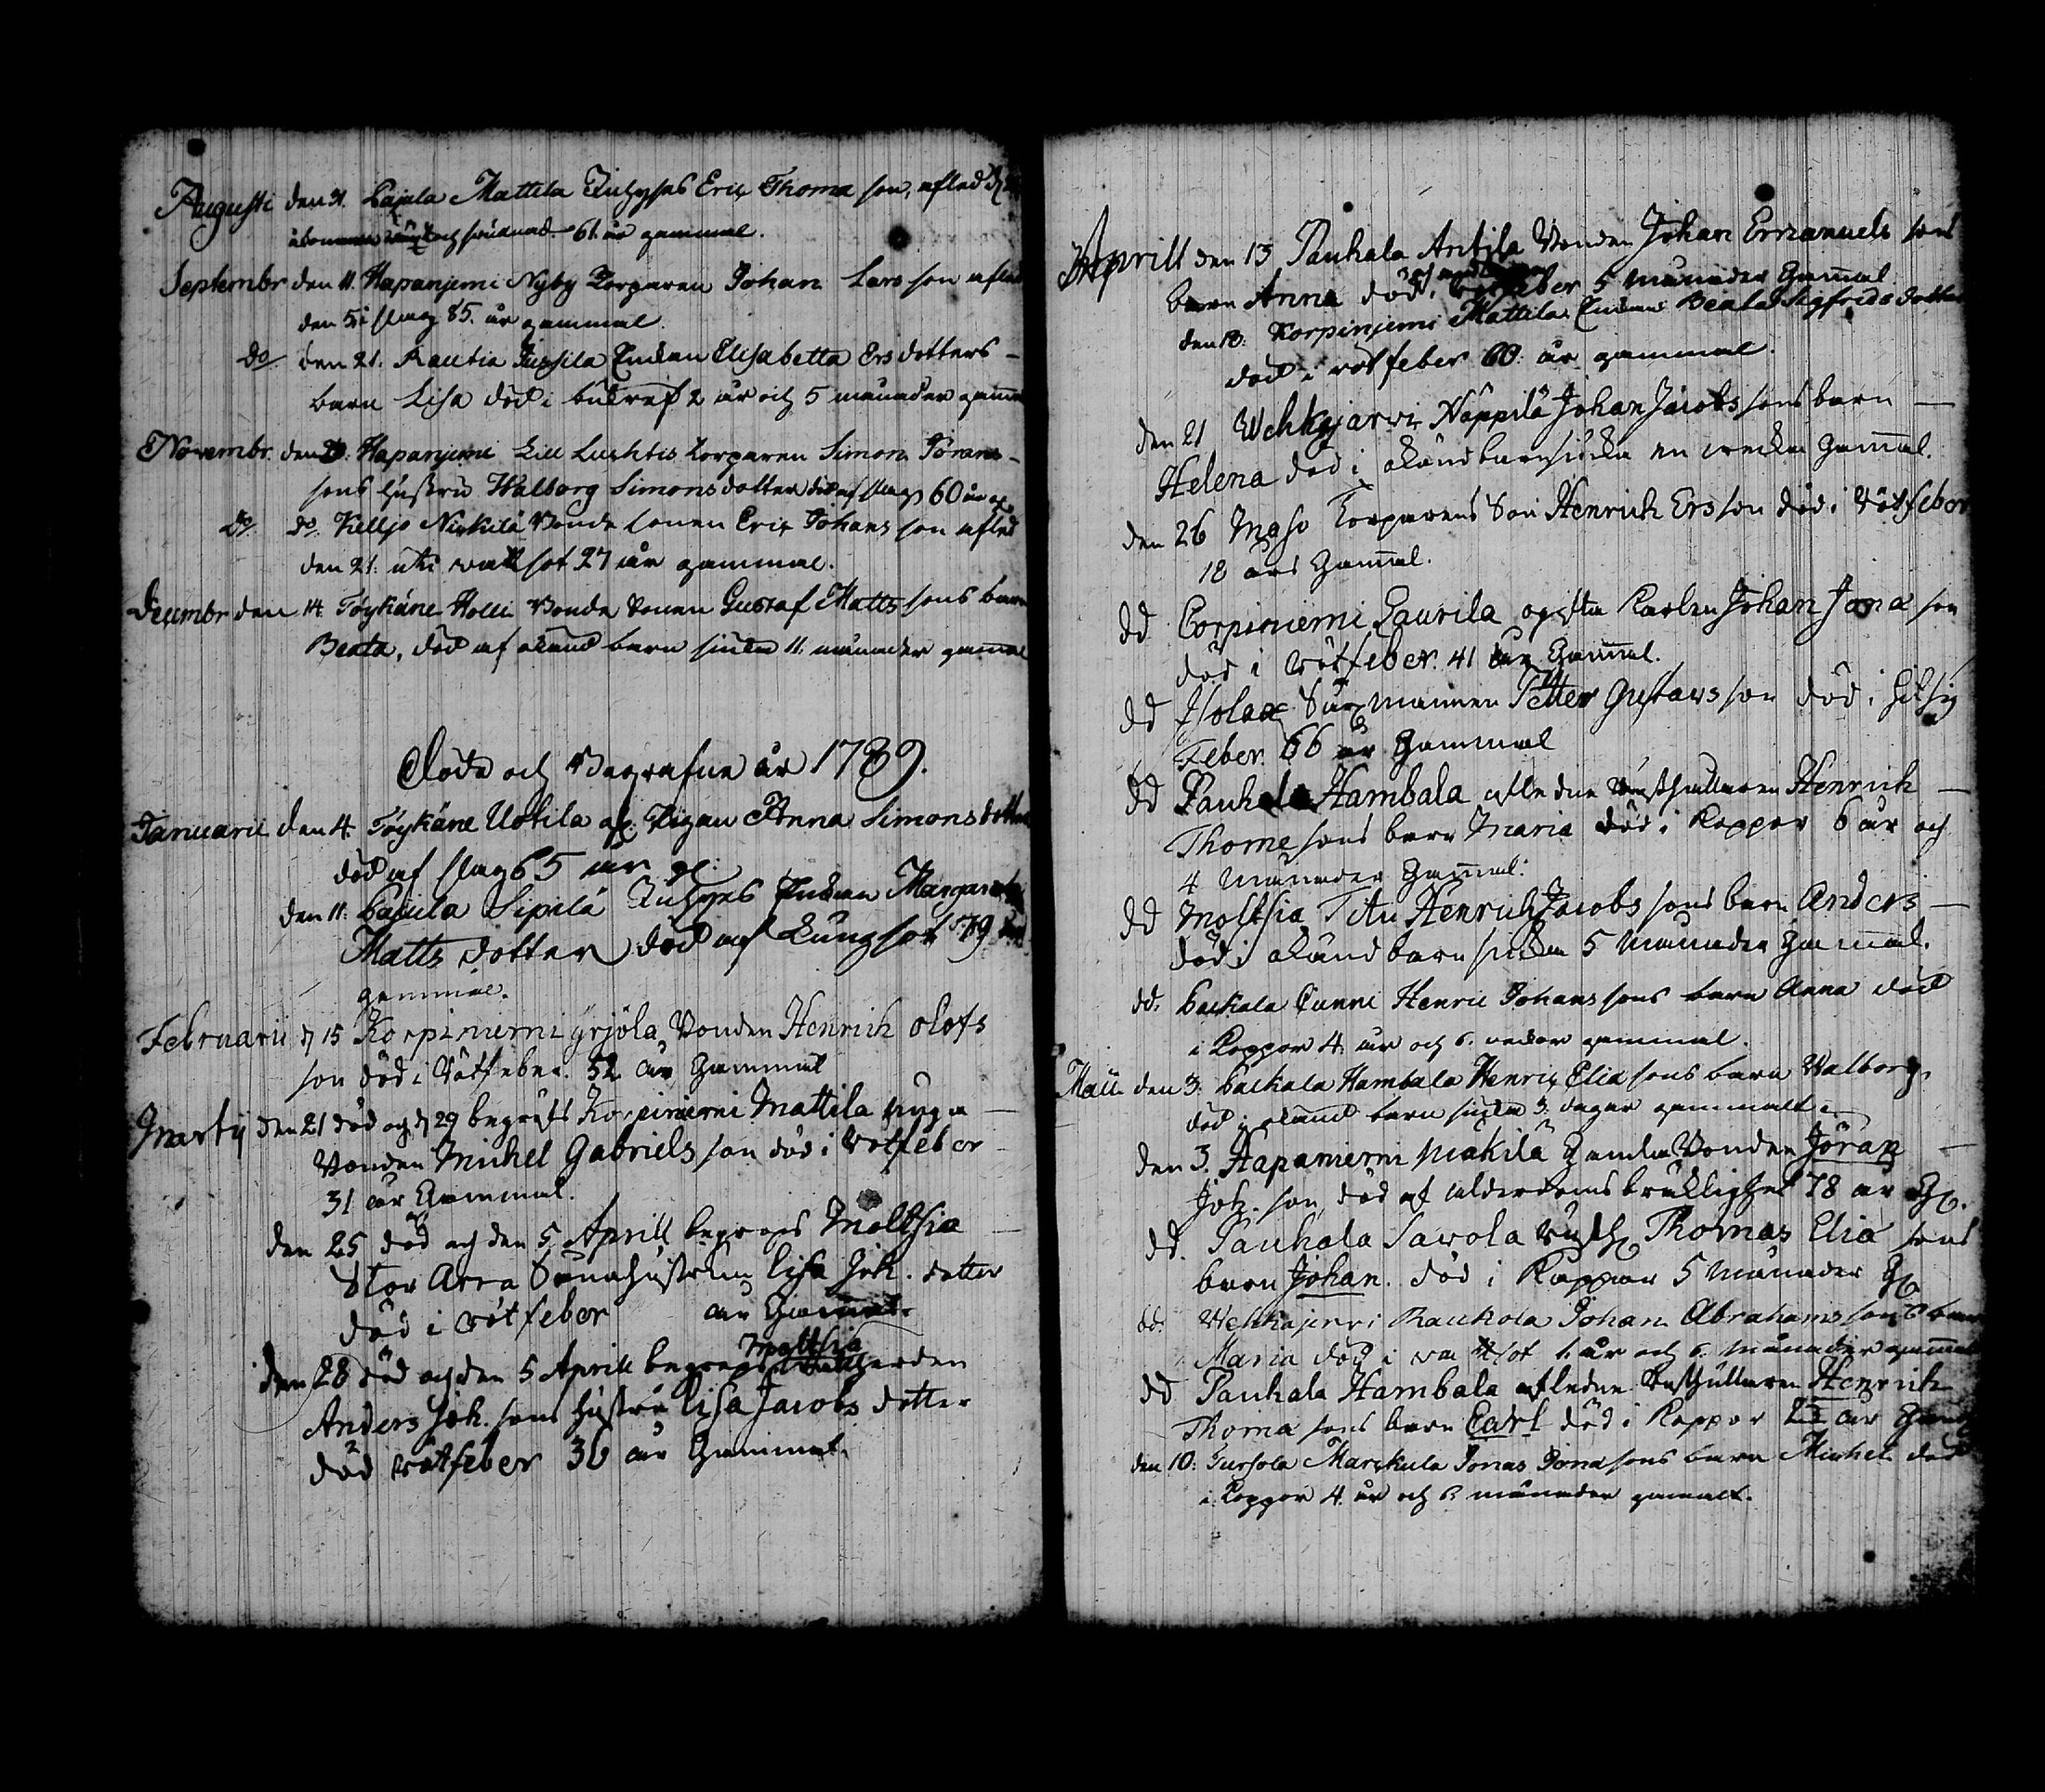 Augusti den 31. Cajala Mattila Inhyses Eric Thoma son, afled d.
åkommen och 61. år gammal.
Septembr den 11. Hapanjemi Nyby Torparen Johan Lars son afled
den 5. i slag 85. år gammal.
do den 21. Rautia Jussila Enkan Elisabetta Ersdotters
barn Lisa död i bukref 2 år och 5 månader gamm
Novembr. den Hapanjemi Lill Luhtis Torparen Simon Jörans
sons hustru Walborg Simonsdotter död af slag 60 år g:
do do. Killjo Nickilä Bonde sonen Eric Johans son afled
den 21. uti vattsot 27 år gammal.
Decembr den 14 Töykäne Holli Bonde sonen Gustaf Matts sons barn
Beata, död af okänd barn siukdom 11. månader gammal
Döde och Begrafne år 1789.
Januarii den 4. Töykäne Uotila Pigan Anna Simonsdotter
död af slag 65 år g:
den 11. Cajala Sipilä Inhyses Enkan Margareta
Matts dotter död af Lungsot 79
gammal.
Februarii d 15 Korpiniemi Yrjölä Bonden Henrich Olofs
son död i Rötfeber. 52 år Gammal
Martij den 21 död och d 29 begrofs Korpiniemi Mattila unga
Bonden Michel Gabriels son död i Rötfeber
31 år Gammal.
den 25 död och den 5 Aprill begrofs Moltsia
Stor Arra Sonahustrun Lisa Joh. dotter
död i rötfeber år Gammal.
den 28 död och den 5 Aprill begrofs Moltsia
Anders Joh. sons hustru Lisa Jacobs dotter
död i rötfeber 36 år Gammal.
Aprill den 13 Pauhala Antila Bonden Johan Emanuels sons
barn Anna död 5 Månader Gammal
den Korpiniemi Mattila Enkan Beata Sigfrids dotter
död i rötfeber 60. år gammal.
den 21 Wehkajarvi Näppilä Johan Jacobs sons barn
Helena död i okänd barnsiucka en wecka Gammal.
den 26 Maso Torparens Son Henrich Ersson död i Rötfeber
18 års Gammal.
dd Corpiniemi Laurila Karlen Johan Jona son
död i Rötfeber. 41 år Gammal.
dd Isolax Petter Gustavs son död i hitsig
Feber. 66 år Gammal
dd Pauhala Hambala afledne Rusthållaren Henrich
Thome sons barn Maria död i Koppor 6 år och
4 Månader Gammal.
dd Moltsia Titu Henrich Jacobs sons barn Anders
död i okänd barn siucka 5 Månader Gammal.
dd. Cunni Henric Johans sons barn Anna död
i Koppor 4. år och 6. veckor gammal.
Maii den 3. Hambala Henric Elia sons barn Walborg.
död i okänd barn siucka 3. dagar gammalt.
den 3. Hapaniemi Makilä Gamla Bonden Jöran
Joh. son, död af ålderdoms bräklighet 78 år G.
dd. Pauhala Savola Rusth. Thomas Elia sons
barn Johan. död i Koppor 5 Månader G
dd. Wehkajervi Raukola Johan Abrahams sons barn
Maria död i vattsot 1. år och 6. månader gammal
dd Pauhala Hambala afledne Rusthållaren Henrich
Thoma sons barn Carl död i Koppor år Gam
den 10. Tursola Marckula Jonas Jona sons barn Michel död
i Koppor 4. år och 6 månader gammalt.